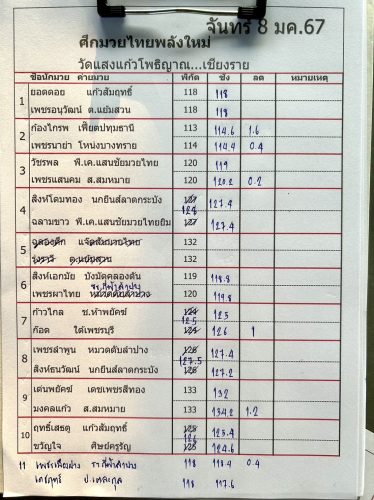 จันทร์ 8 มค.67
ศึกมวยไทยพลังใหม่
วัดแสงแก้วโพธิญาณ...เชียงราย
ชื่อนักมวย ค่ายมวย พิกัด ชั่ง ลด หมายเหตุ
1 ยอดดอย แก้วสัมฤทธิ์ 118 118
เพชรอนุวัฒน์ ต.แย้มสวน 118 118
2 ก้องไกรพ เฟี้ยตปทุมธานี 113 114.6 1.6
เพชรนาย่า โหน่งบางทราย 114 114.4 0.4
3 วัชรพล พี.เค.แสนชัยมวยไทย 120 119
เพชรแสนคม ส.สมหมาย 120 120.2 0.2
4 สิงห์โดมทอง นกยีนส์ลาดกระบัง 127 127.4
128
ฉลามขาว พี.เค.แสนชัยมวยไทยยิม 127 127.4
5 132
132
6 สิงห์เอกมัย บังมัดคลองตัน 119 118.8
เพชรผาไทย หมวดดับลำปาง 120 119.8
7 ก้าวไกล ช.ห้าพยัคฆ์ 124 125 123
ก๊อต ใต้เพชรบุรี 124 126 1
8 เพชรลำพูน หมวดดับลำปาง 126 127.4
127.5
สิงห์ธนวัฒน์ นกยีนส์ลาดกระบัง 126 127.2
9 เด่นพยัคฆ์ เดชเพชรสีทอง 133 132
มงคลแก้ว ส.สมหมาย 133 134.2 1.2
10 ฤทธิ์เสธตู แก้วสัมฤทธิ์ 125 123.4
126
ขวัญใจ ศิษย์ครูรัญ 125 124.6
11 118 118.4 0.4
118 117.6